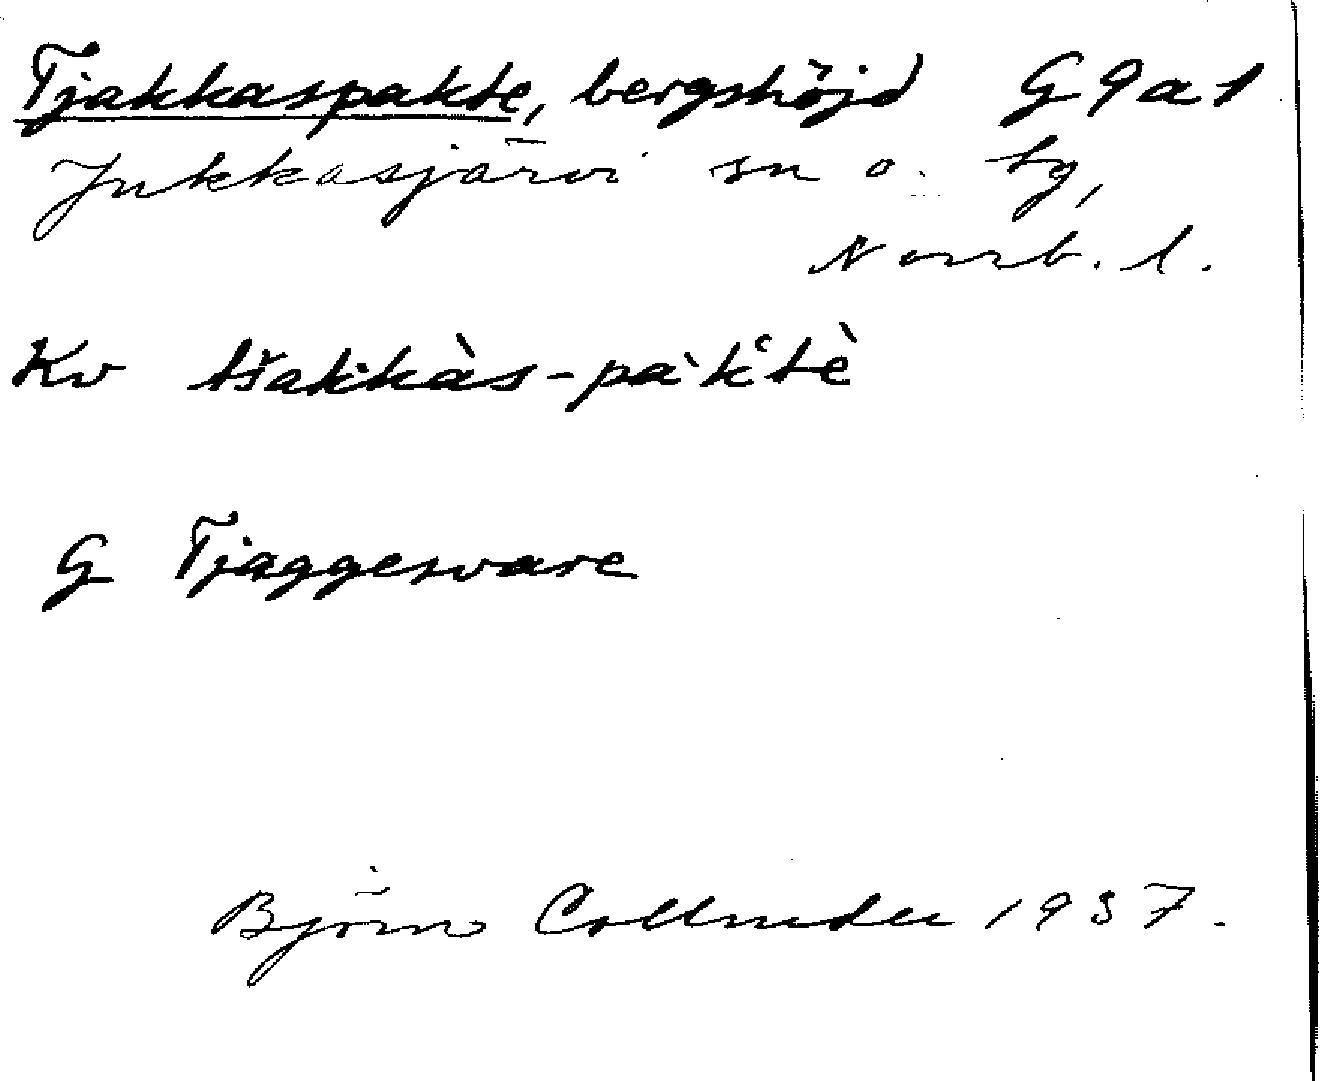 Tjakkaspakte, bergshöjd G 9 a 1
Jukkasjärvi sn o. tg,
Norrb. l.
Kv tšakkàs-pàk‘tè
G Tjaggesvare
Björn Collinder 1937.